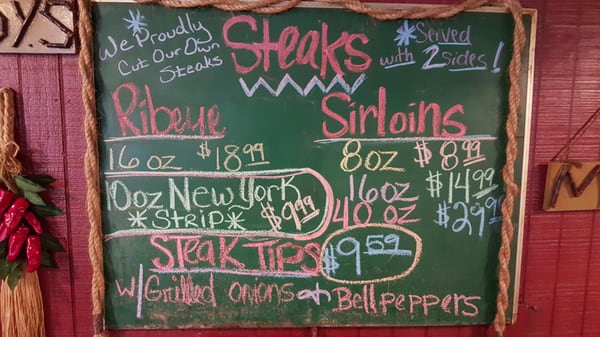 Y'S.
*We Proudly
Cut Our Own
Steaks
Steaks
*Served
with 2 sides!
Ribeye
16 oz $18.99
10oz NEW YORK
*STRIP* $9.99
Sirloins
8oz $8.99
16oz $14.99
40 oz $29.99
STEAK TIPS $9.59
w/ Grilled onions & Bell peppers
M